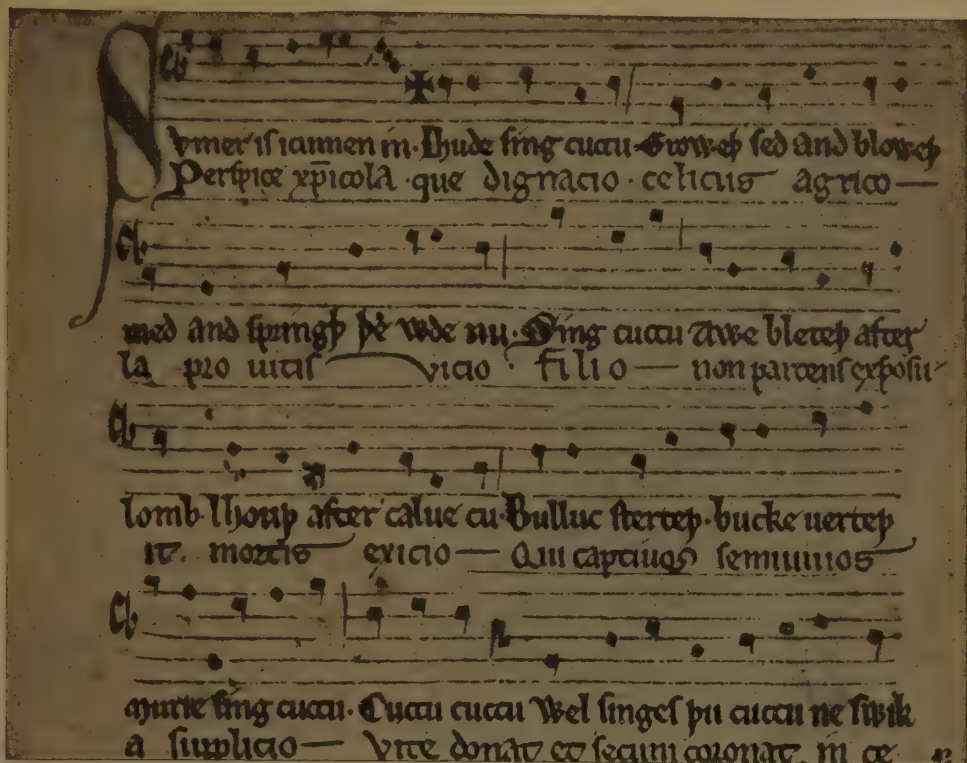 Sumer is icumen in · Lhude sing cuccu · Groweþ sed and bloweþ
Perspice xp̄icola · que dignacio · celicus agrico—
med and springþ þe wde nu · Sing cuccu Awe bleteþ after
la pro uitis vicio · filio — non parcens exposu-
lomb · lhouþ after calue cu · Bulluc sterteþ · bucke uerteþ
it · mortis exicio — Qui captiuos semiuiuos
murie sing cuccu · Cuccu cuccu Wel singes þu cuccu ne swik
a supplicio — Vite donat et secum coronat · in ce